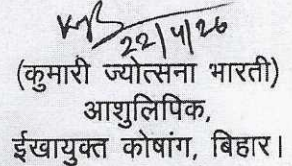 22/4/26
(कुमारी ज्योत्सना भारती)
आशुलिपिक,
ईखायुक्त कोषांग, बिहार।